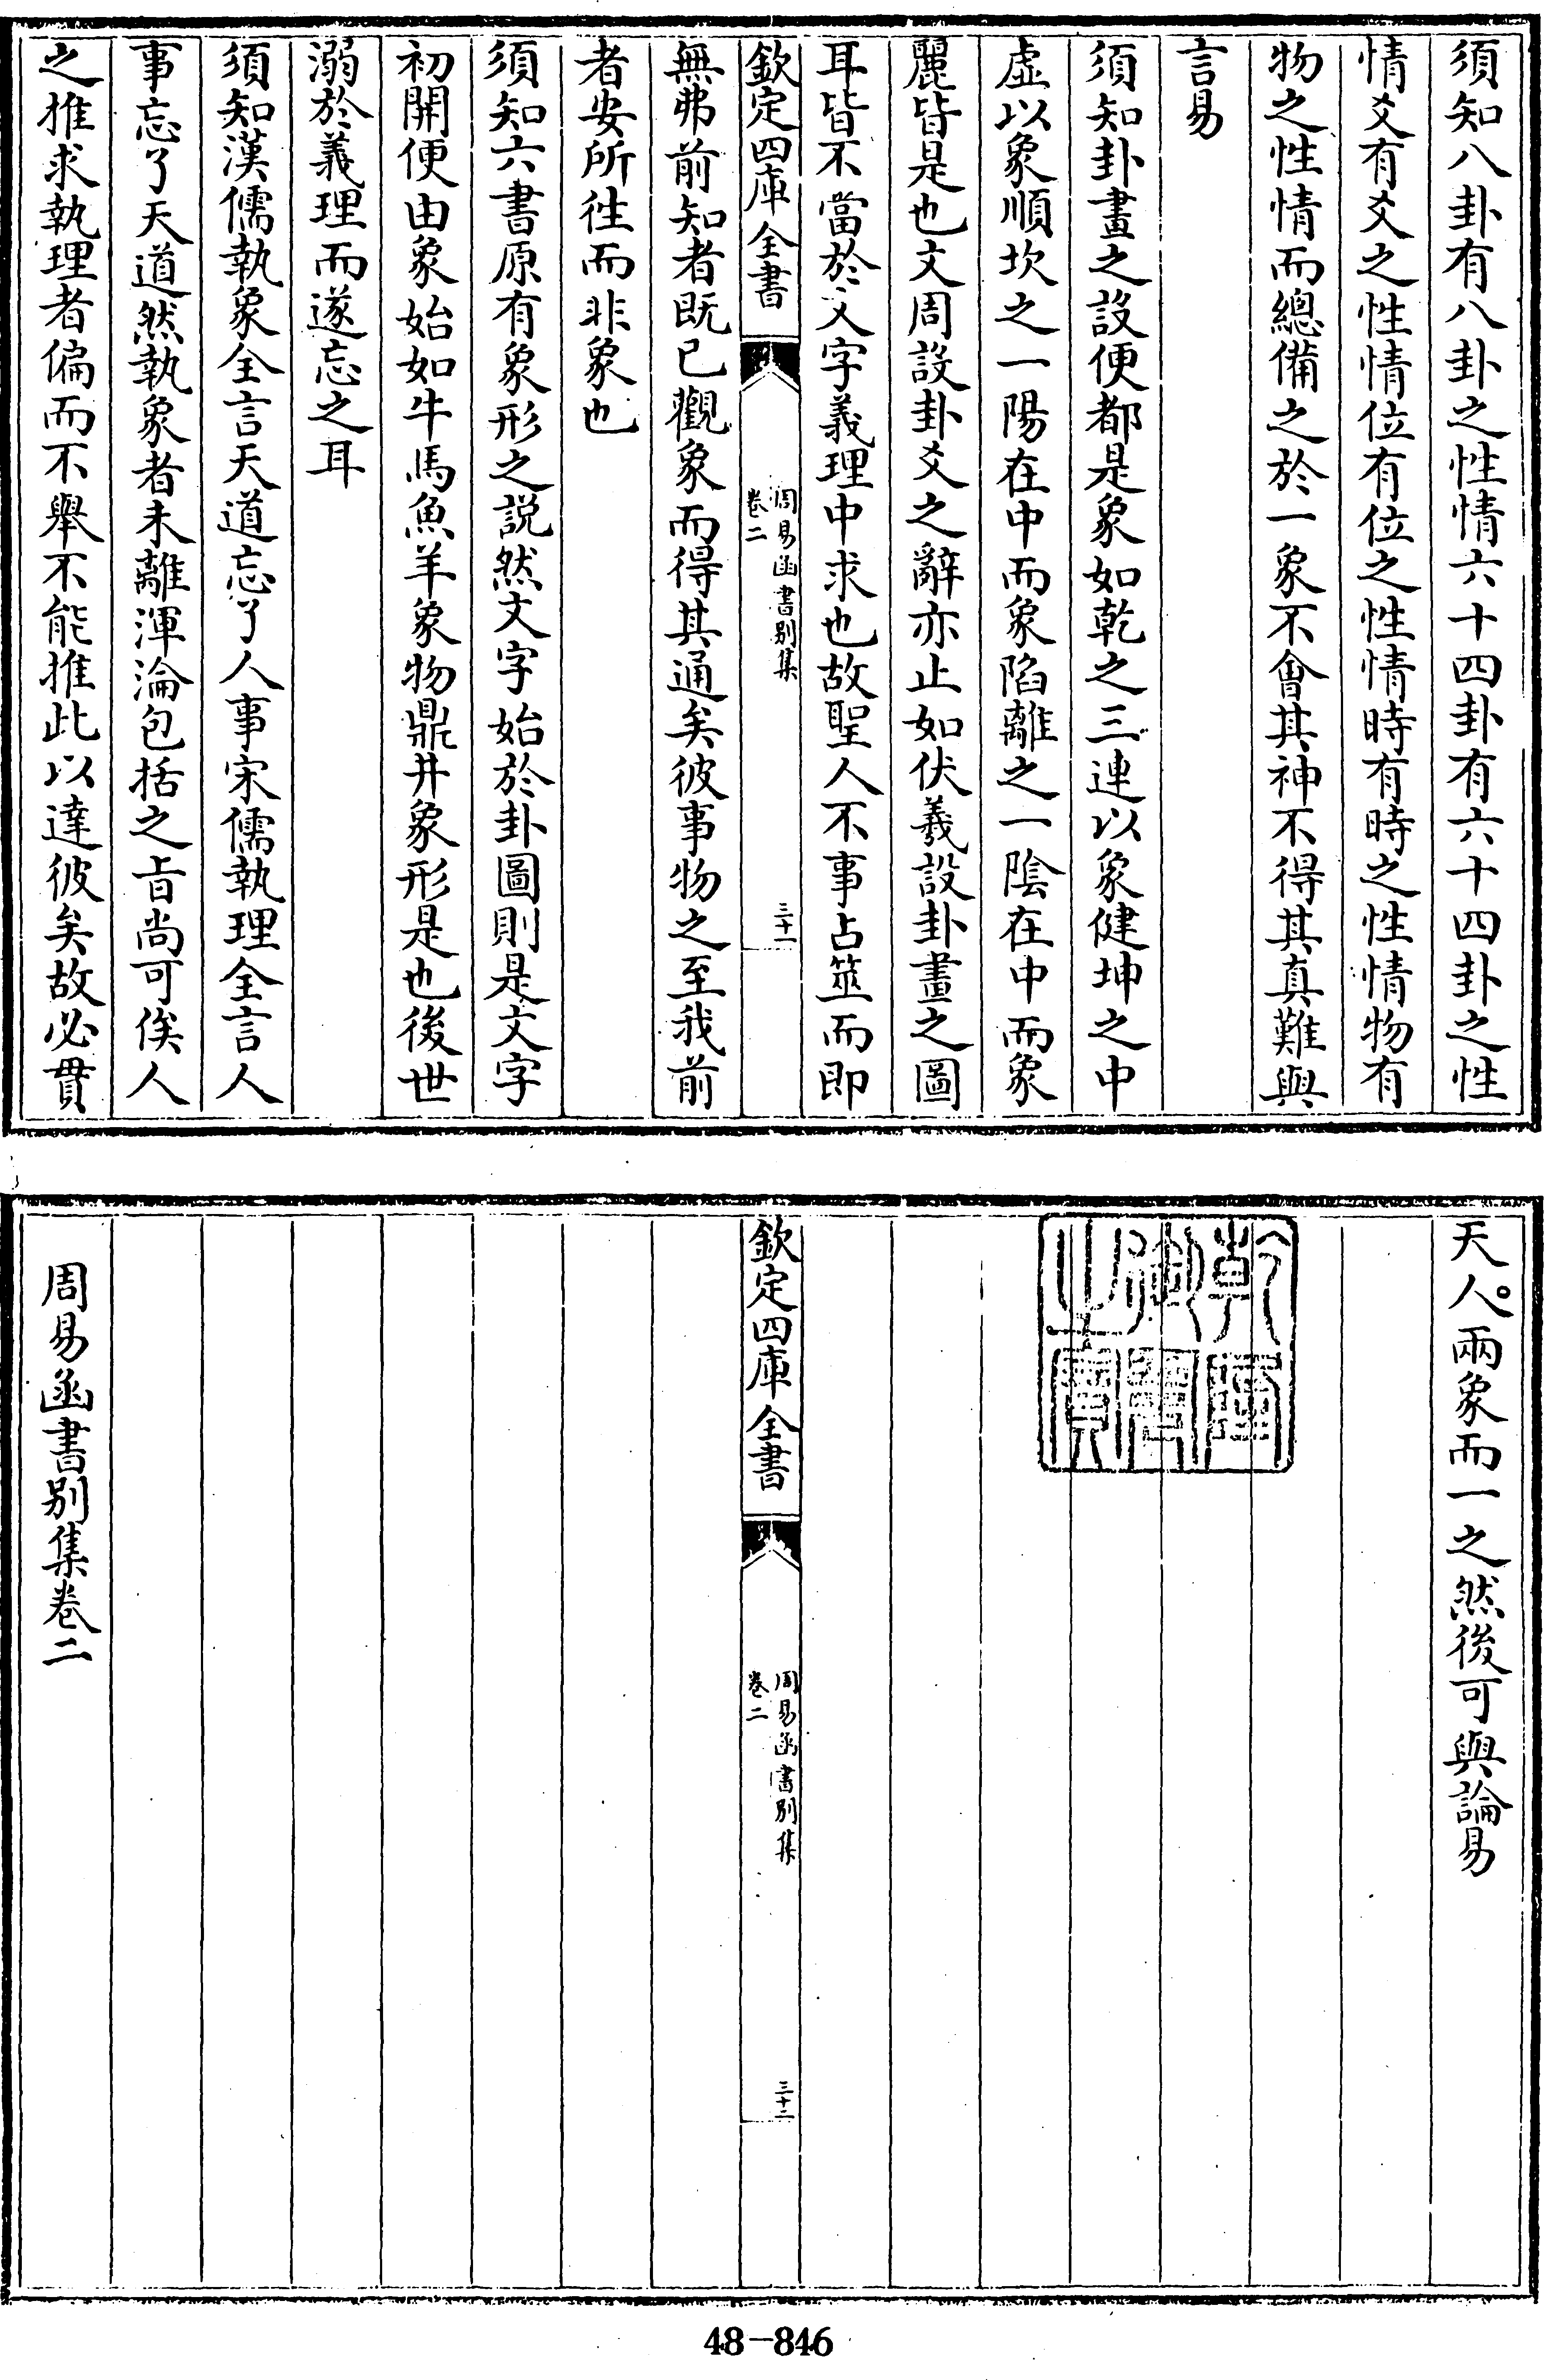 須知八卦有八卦之性情六十四卦有六十四卦之性
情爻有爻之性情位有位之性情時有時之性情物有
物之性情而總備之於一象不會其神不得其真難與
言易
須知卦畫之設便都是象如乾之三連以象健坤之中
虛以象順坎之一陽在中而象陷離之一陰在中而象
麗皆是也文周設卦爻之辭亦止如伏羲設卦畫之圖
耳皆不當於文字義理中求也故聖人不事占筮而即
欽定四庫全書
周易函書別集
卷二
三十一
無弗前知者既已觀象而得其通矣彼事物之至我前
者安所徃而非象也
須知六書原有象形之説然文字始於卦圖則是文字
初開便由象始如牛馬魚羊象物鼎井象形是也後世
溺於義理而遂忘之耳
須知漢儒執象全言天道忘了人事宋儒執理全言人
事忘了天道然執象者未離渾淪包括之旨尚可俟人
之推求執理者偏而不舉不能推此以達彼矣故必貫
天人兩象而一之然後可與論易
乾隆御覽之寶
欽定四庫全書
周易函書別集
卷二
三十二
周易函書別集卷二
48-846